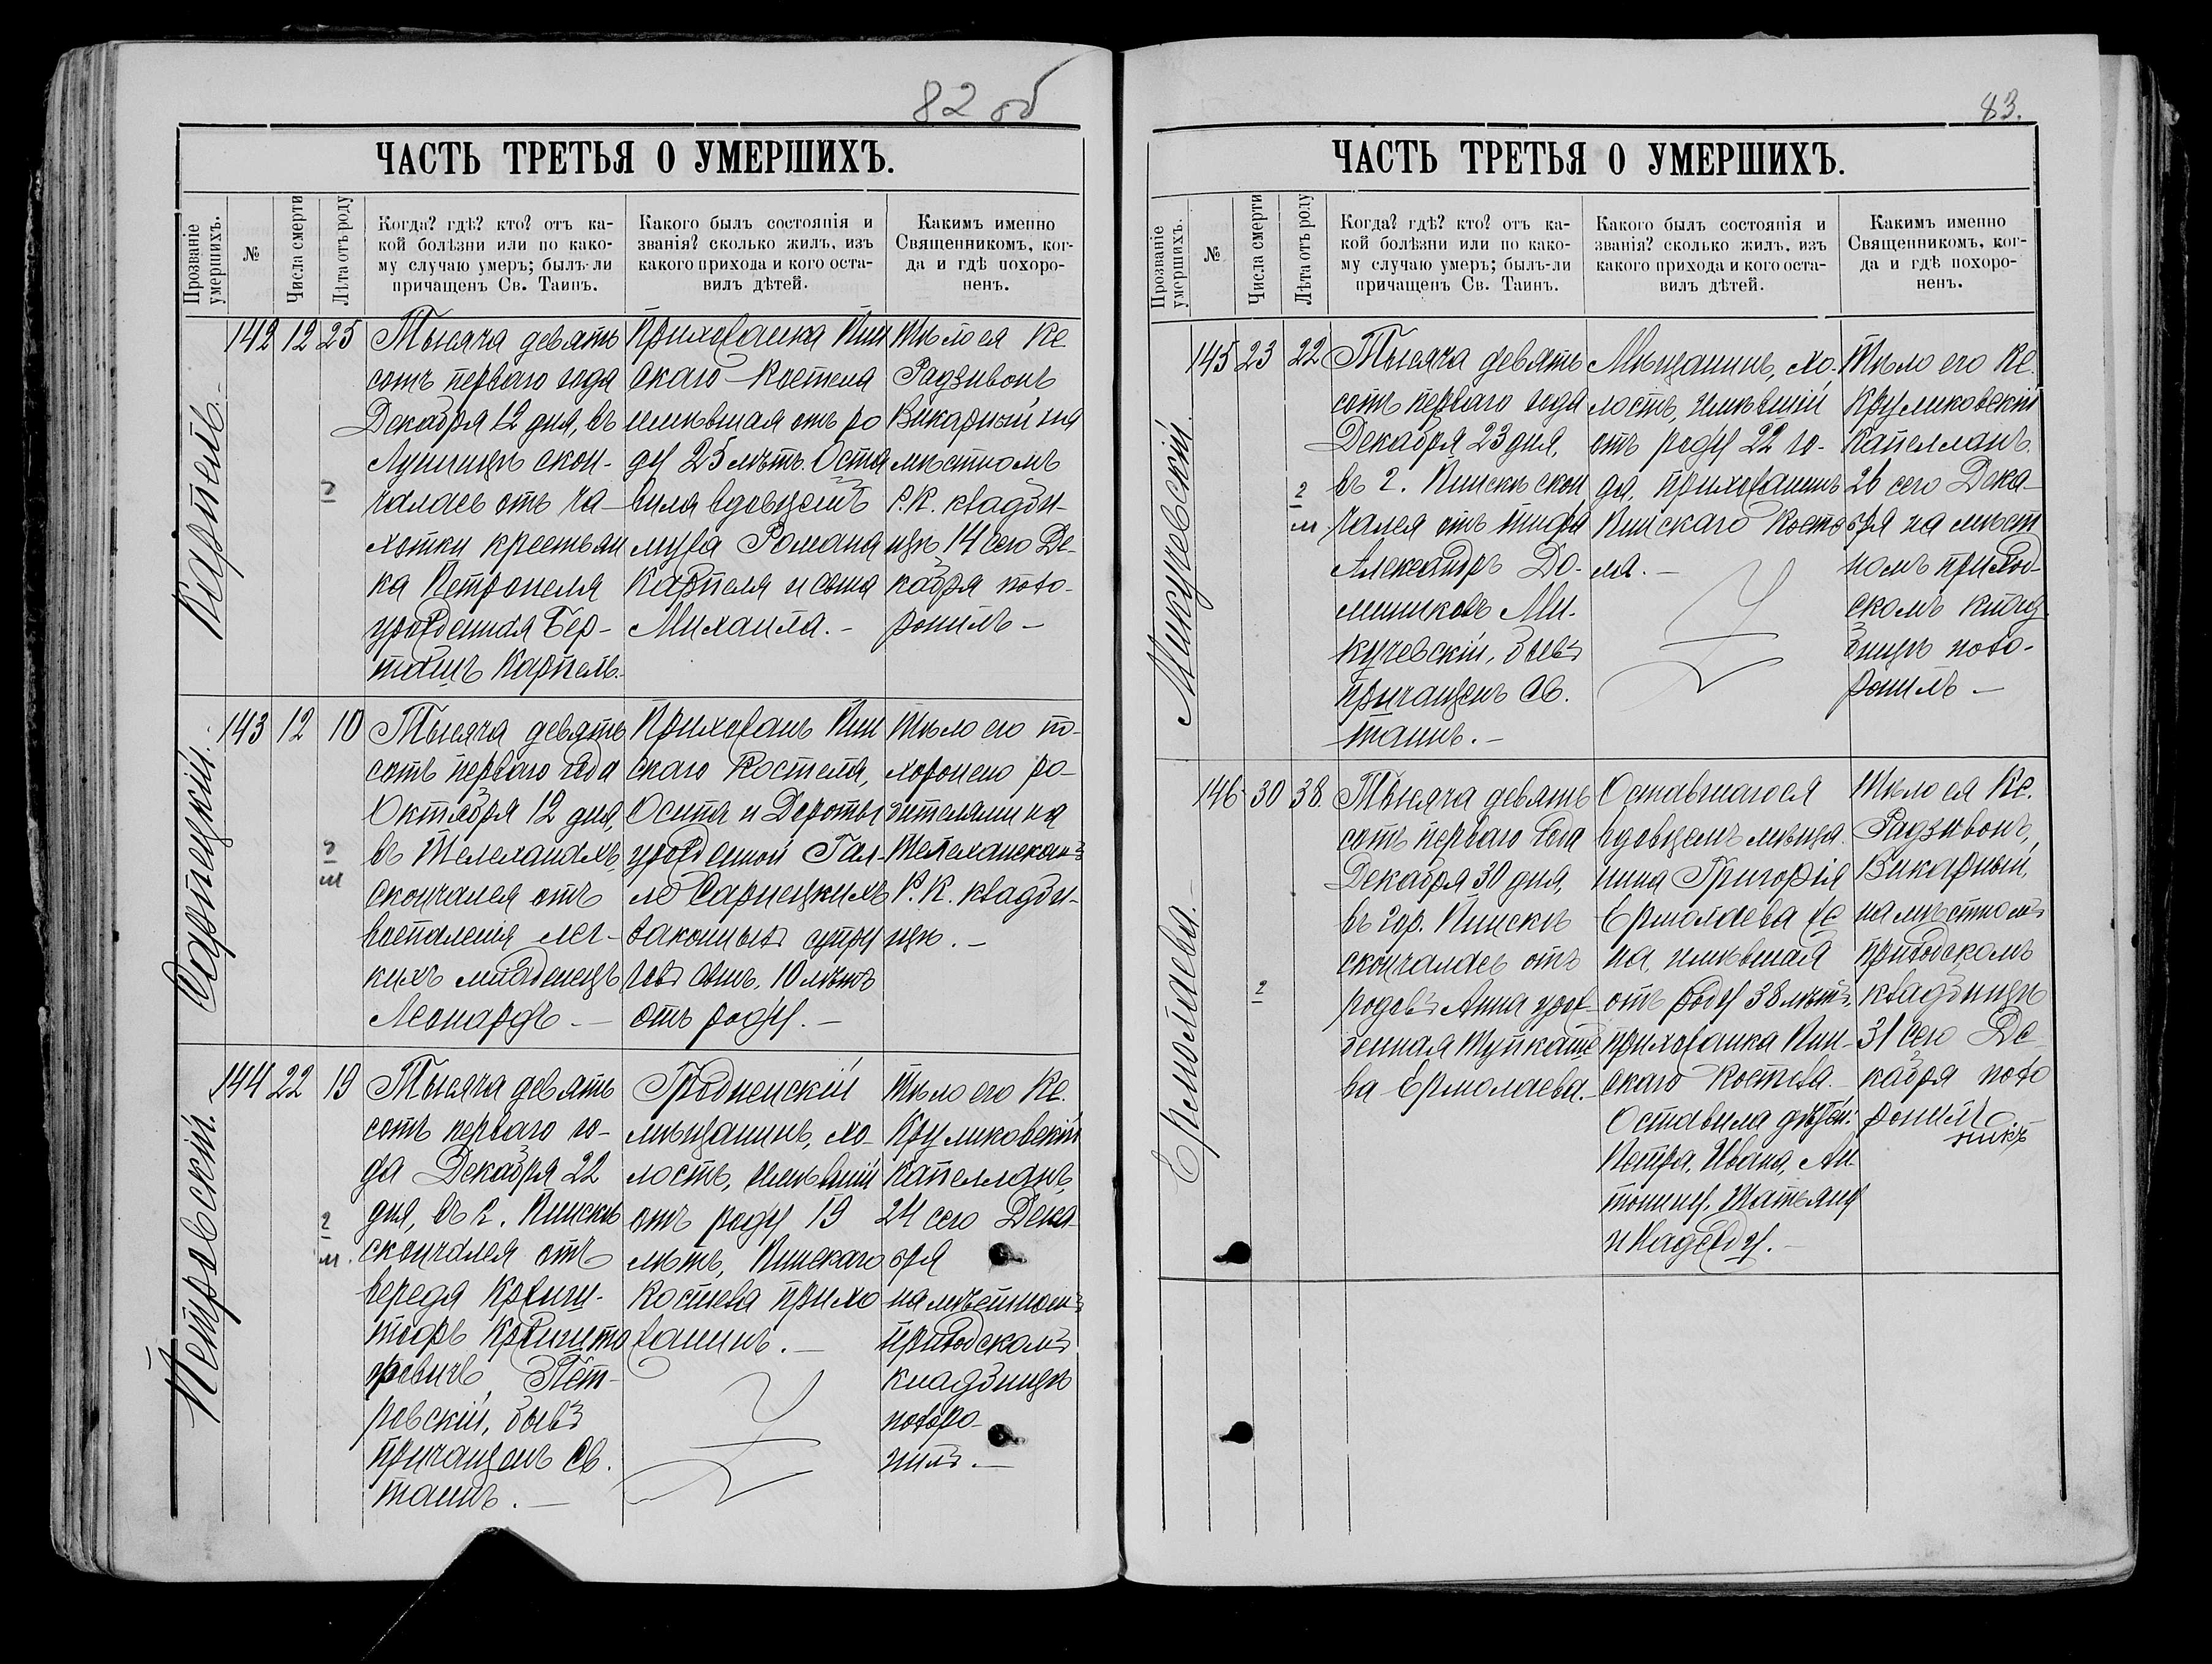 82 об
ЧАСТЬ ТРЕТЬЯ О УМЕРШИХЪ.
Прозваніе умершихъ.
№
Числа смерти
Лѣта отъ роду
Когда? гдѣ? кто? отъ ка-
кой болѣзни или по како-
му случаю умеръ; былъ-ли
причащенъ Св. Таинъ.
Какого былъ состоянія и
званія? сколько жилъ, изъ
какого прихода и кого оста-
вилъ дѣтей.
Какимъ именно
Священникомъ, ког-
да и гдѣ похоро-
ненъ.
Карпель.
142 12 25
Тысяча девять
сотъ перваго года
Декабря 12 дня, въ
скон-
чалась отъ ча-
хотки крестьян
ка Петронеля
урожденная Бер-
Карпель.
Прихожанка Пин
скаго Костела
имѣвшая отъ ро
ду 25 лѣтъ. Оста
вила вдовцемъ
мужа Романа
Карпеля и сына
Михаила. –
Тѣло ея Кс
Радзивонъ
Викарный на
мѣстномъ
Р.К. кладби-
щѣ 14 сего Де-
кабря похо-
ронилъ –
Сарнецкій.
143 12 10
Тысяча девять
сотъ перваго года
Октября 12 дня,
въ Телеханахъ,
скончался отъ
воспаленія лег-
кихъ младенецъ
Леонардъ. –
Прихожанъ Пин
скаго Костела,
Осипа и Дороты
урожденной Гал-
ло Сарнецкихъ
законныхъ супру
говъ сынъ, 10 лѣтъ
отъ роду. –
Тѣло его по-
хоронено ро-
дителями на
Телеханскомъ
Р. К. кладби-
щѣ. –
Петровскій.
144 22 19
Тысяча девять
сотъ перваго го-
да Декабря 22
дня, въ г. Пинскѣ
скончался отъ
вереда Кришш-
тофъ Кришто
фовичъ Пет-
ровскій, бывъ
причащенъ Св.
таинъ. –
Гродненскій
мѣщанинъ, хо-
лостъ, имѣвшій
отъ роду 19
лѣтъ, Пинскаго
Костела прихо
жанинъ. –
Тѣло его Кс.
Круликовскій
Капелланъ,
24 сего Дека
бря
на мѣстномъ
приходскомъ
кладбищѣ
похоро-
нилъ. –
83.
ЧАСТЬ ТРЕТЬЯ О УМЕРШИХЪ.
Прозваніе умершихъ.
№
Числа смерти
Лѣта отъ роду
Когда? гдѣ? кто? отъ ка-
кой болѣзни или по како-
му случаю умеръ; былъ-ли
причащенъ Св. Таинъ.
Какого былъ состоянія и
званія? сколько жилъ, изъ
какого прихода и кого оста-
вилъ дѣтей.
Какимъ именно
Священникомъ, ког-
да и гдѣ похоро-
ненъ.
Микучевскій.
145 23 22
Тысяча девять
сотъ перваго года
Декабря 23 дня,
въ г. Пинскѣ скон
чался отъ тифа
Александръ До-
миниковъ Ми-
кучевскій, бывъ
причащенъ Св.
таинъ. –
Мѣщанинъ, хо-
лостъ, имѣвшій
отъ роду 22 го-
да, прихожанинъ
Пинскаго Косте
ла. –
Тѣло его Кс.
Круликовскій
Капелланъ.
26 сего Дека-
бря на мѣст
номъ приход-
скомъ клад
бищѣ похо-
ронилъ –
Ермолаева. –
146 30 38.
Тысяча девять
сотъ перваго года
Декабря 30 дня,
въ гор. Пинскѣ
скончалась отъ
родовъ Анна урож
денная
ва Ермолаева. –
Оставшагося
вдовцемъ мѣща
нина Григорія
Ермолаева же
на, имѣвшая
отъ роду 38 лѣтъ,
прихожанка Пин-
скаго Костела. –
Оставила дѣтей:
Петра, Ивана, Ан-
тонину, Татьяну
и Надежду. –
Тѣло ея Кс.
Радзивонъ,
Викарный,
на мѣстномъ
приходскомъ
кладбищѣ
31 сего Де-
кабря похо
ронилъ